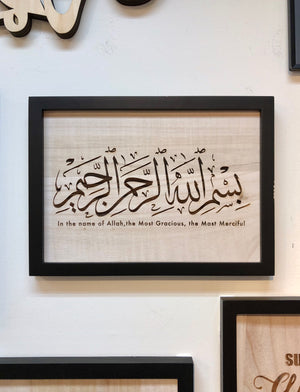 بِسْمِ اللَّهِ الرَّحْمَٰنِ الرَّحِيمِ
In the name of Allah,the Most Gracious, the Most Merciful
SU